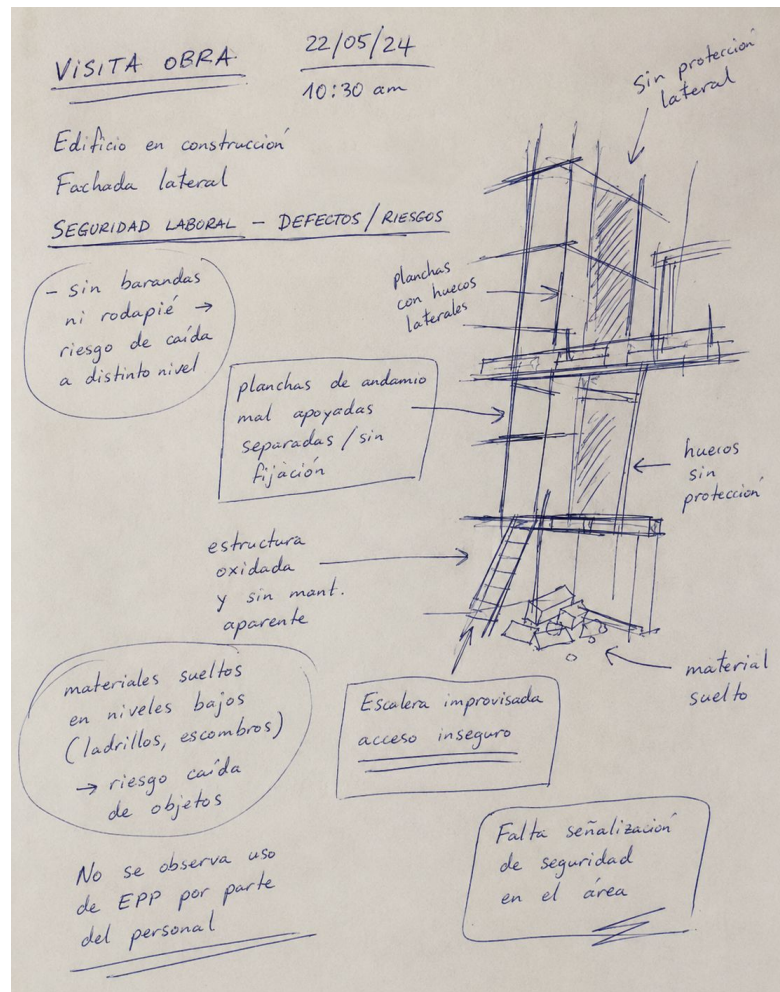 VISITA OBRA
22/05/24
10:30 am
Edificio en construcción
Fachada lateral
SEGURIDAD LABORAL – DEFECTOS/RIESGOS
sin protección
lateral
– sin barandas
ni rodapié →
riesgo de caída
a distinto nivel
planchas
con huecos
laterales
planchas de andamio
mal apoyadas
separadas / sin
fijación
huecos
sin
protección
estructura
oxidada
y sin mant.
aparente
materiales sueltos
en niveles bajos
(ladrillos, escombros)
→ riesgo caída
de objetos
Escalera improvisada
acceso inseguro
material
suelto
No se observa uso
de EPP por parte
del personal
Falta señalización
de seguridad
en el área